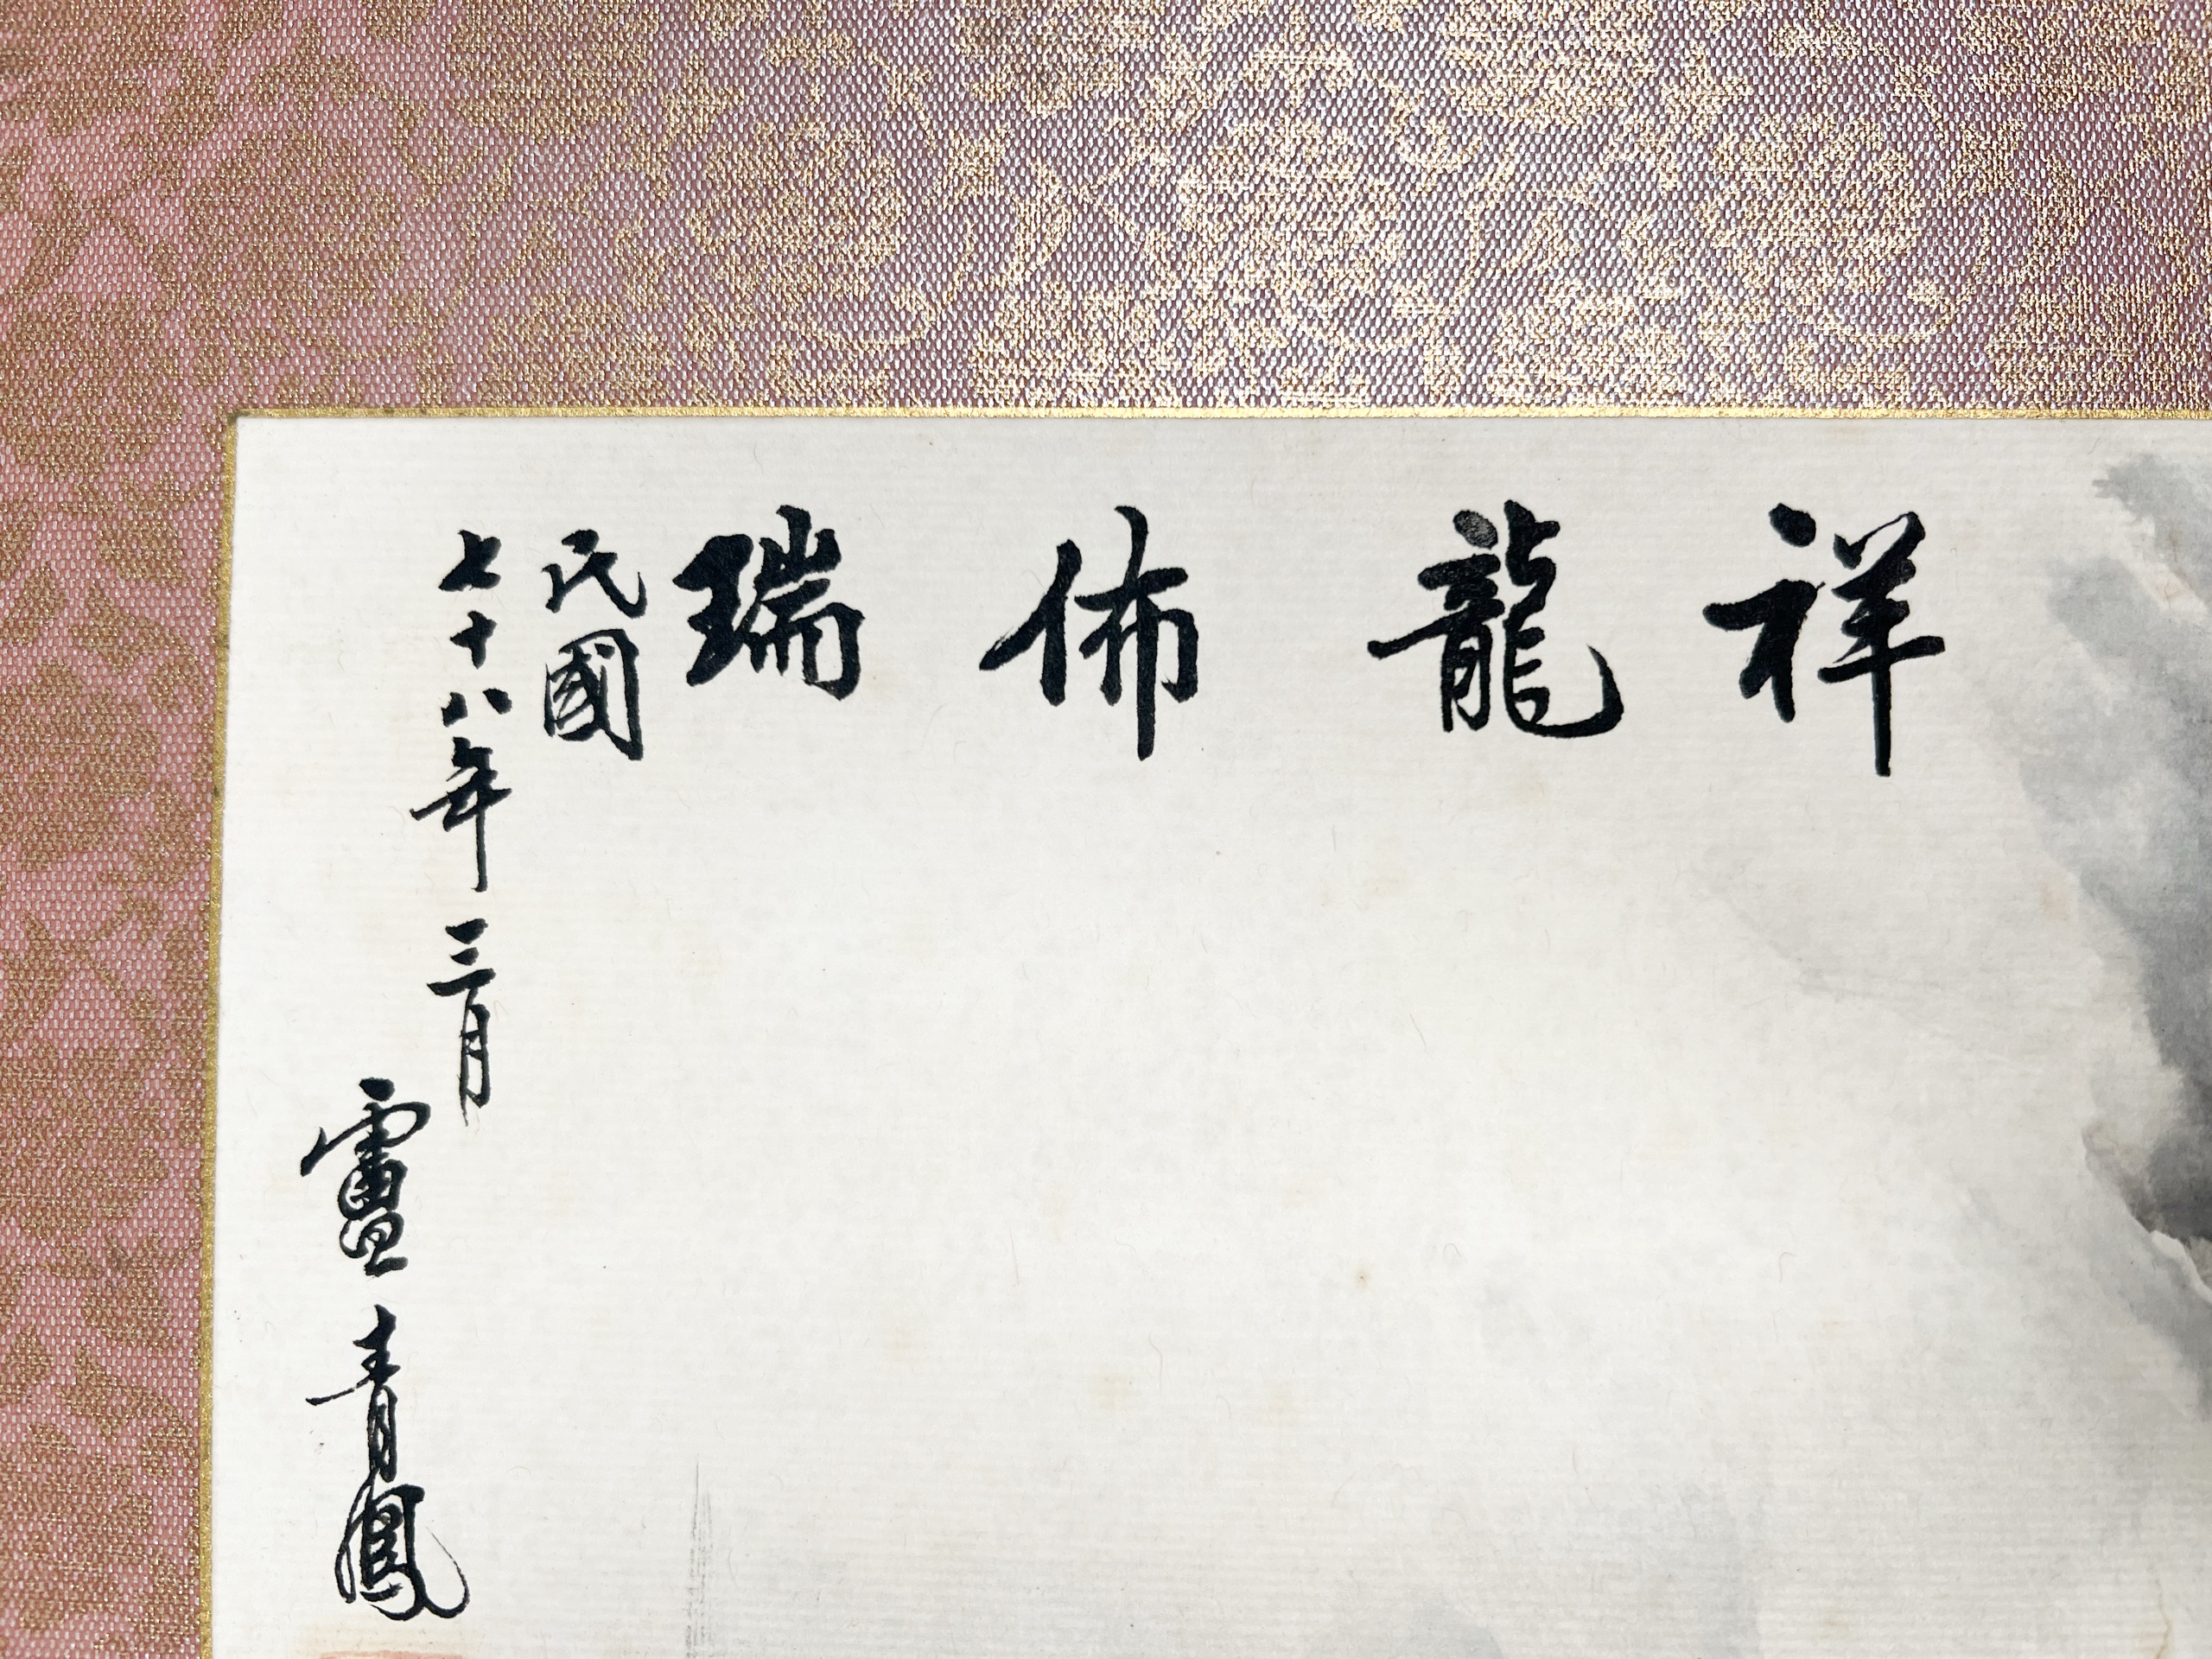 祥龍佈瑞
民國
七十八年三月
盧青鳳